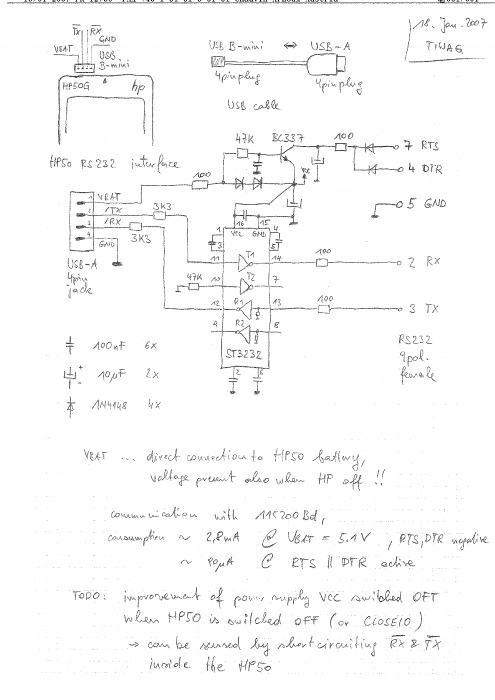 18. Jan. 2007
TX RX
GND
VBAT
USB
B-mini
HP50G hp
HP50 RS232 interface
USB B-mini ⇔ USB-A
4pin plug
4pin plug
USB cable
47K
BC337
100
7 RTS
4 DTR
5 GND
100
1 VBAT
2 /TX
3 /RX
4
GND
3K3
3K3
USB-A
4pin
jack
16 15
VCC GND
1
3
4
5
11 T1 14
100
2 RX
47K
10 T2 7
12 R1 13
100
3 TX
9 R2 8
ST3232
2 6
RS232
9pol.
female
100nF 6x
10µF 2x
1N4148 4x
VBAT ... direct connection to HP50 battery,
voltage present also when HP off !!
communication with 115200Bd,
consumption ~ 2,8mA @ VBAT = 5.1V , RTS, DTR negative
~ 90µA @ RTS || DTR active
TODO: improvement of power supply VCC switched OFF
when HP50 is switched OFF (or CLOSEIO)
→ can be sensed by shortcircuiting RX & TX
inside the HP50